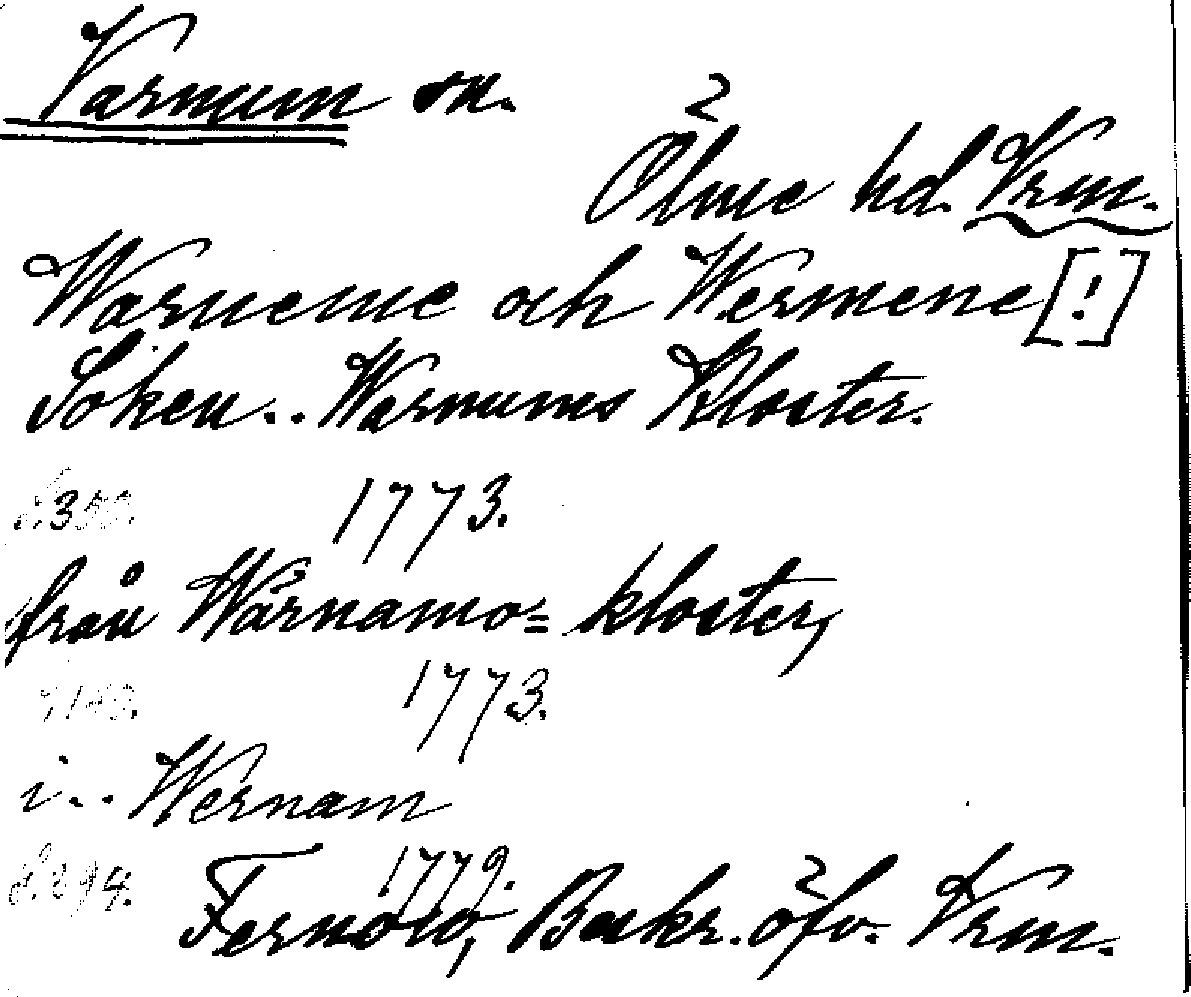 Varnum sn.
Ölme hd. Vrm.
Warneme och Wermene [!]
Soken .. Warnums Kloster.
1773.
från Wärnamo= kloster,
1773.
i .. Wernam
1779.
Fernow, Beskr. öfv. Vrm.